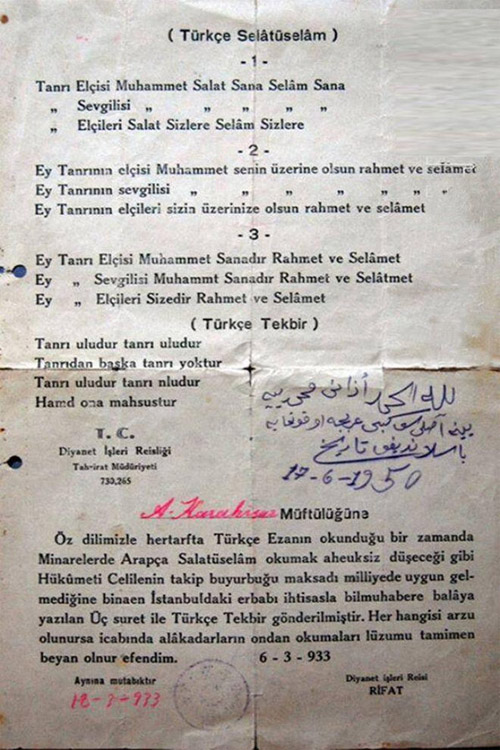 ( Türkçe Selâtüselâm )
- 1 -
Tanrı Elçisi Muhammet Salat Sana Selâm Sana
„ Sevgilisi „ „ „ „ „
„ Elçileri Salat Sizlere Selâm Sizlere
- 2 -
Ey Tanrının elçisi Muhammet senin üzerine olsun rahmet ve selâmet
Ey Tanrının sevgilisi „ „ „ „ „ „
Ey Tanrının elçileri sizin üzerinize olsun rahmet ve selâmet
- 3 -
Ey Tanrı Elçisi Muhammet Sanadır Rahmet ve Selâmet
Ey „ Sevgilisi Muhammt Sanadır Rahmet ve Selâtmet
Ey „ Elçileri Sizedir Rahmet ve Selâmet
( Türkçe Tekbir )
Tanrı uludur tanrı uludur
Tanrıdan başka tanrı yoktur
Tanrı uludur tanrı nludur
Hamd ona mahsustur
لله الحمد أذان محمدییه
ینه اصلی کبی عربجه اوقونمایه
باسلاندیغی تاریخ
17-6-1950
T. C.
Diyanet İşleri Reisliği
Tahrirat Müdüriyeti
730,265
A. Karahisar Müftülüğüne
Öz dilimizle hertarfta Türkçe Ezanın okunduğu bir zamanda
Minarelerde Arapça Salatüselâm okumak aheuksiz düşeceği gibi
Hükûmeti Celilenin takip buyurbuğu maksadı milliyede uygun gel-
mediğine binaen İstanbuldaki erbabı ihtisasla bilmuhabere balâya
yazılan Üç suret ile Türkçe Tekbir gönderilmiştir. Her hangisi arzu
olunursa icabında alâkadarların ondan okumaları lüzumu tamimen
beyan olnur efendim. 6 - 3 - 933
Aynına mutabıktır
18-3-933
Diyanet işleri Reisi
RİFAT